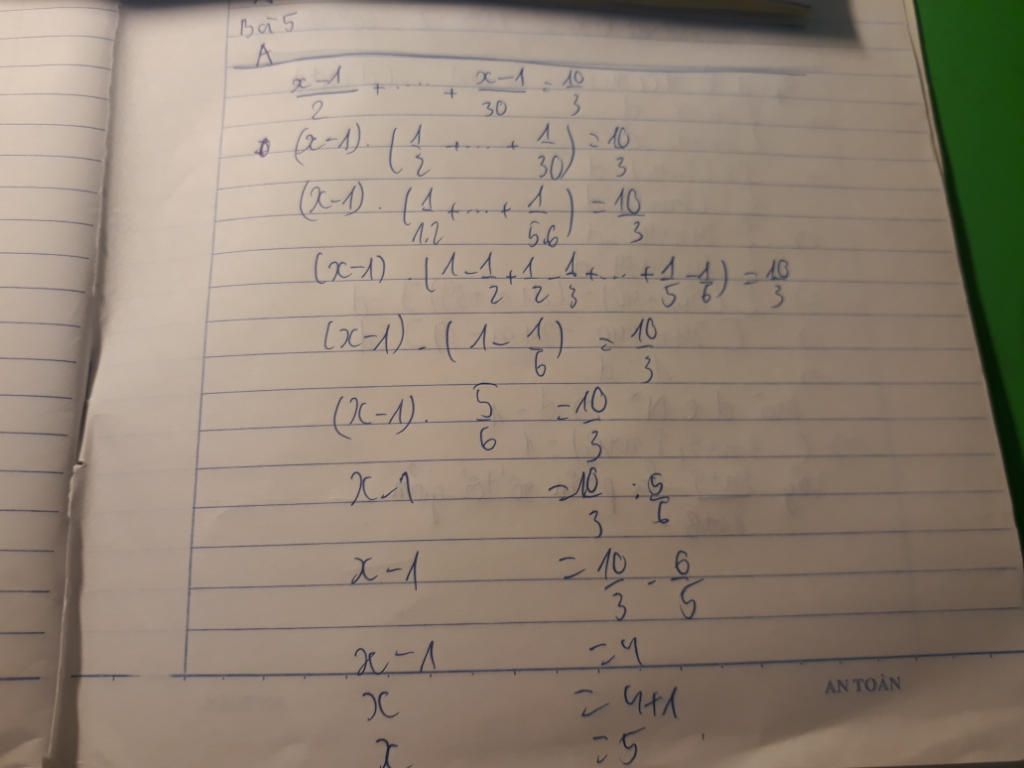 Bài 5
A
x-1/2 + ..... + x-1/30 = 10/3
(x-1) . (1/2 + .... + 1/30) = 10/3
(x-1) . (1/1.2 + ... + 1/5.6) = 10/3
(x-1) . (1 - 1/2 + 1/2 - 1/3 + ... + 1/5 - 1/6) = 10/3
(x-1) . (1 - 1/6) = 10/3
(x-1) . 5/6 = 10/3
x-1 = 10/3 : 5/6
x-1 = 10/3 . 6/5
x-1 = 4
AN TOÀN
x = 4+1
x = 5